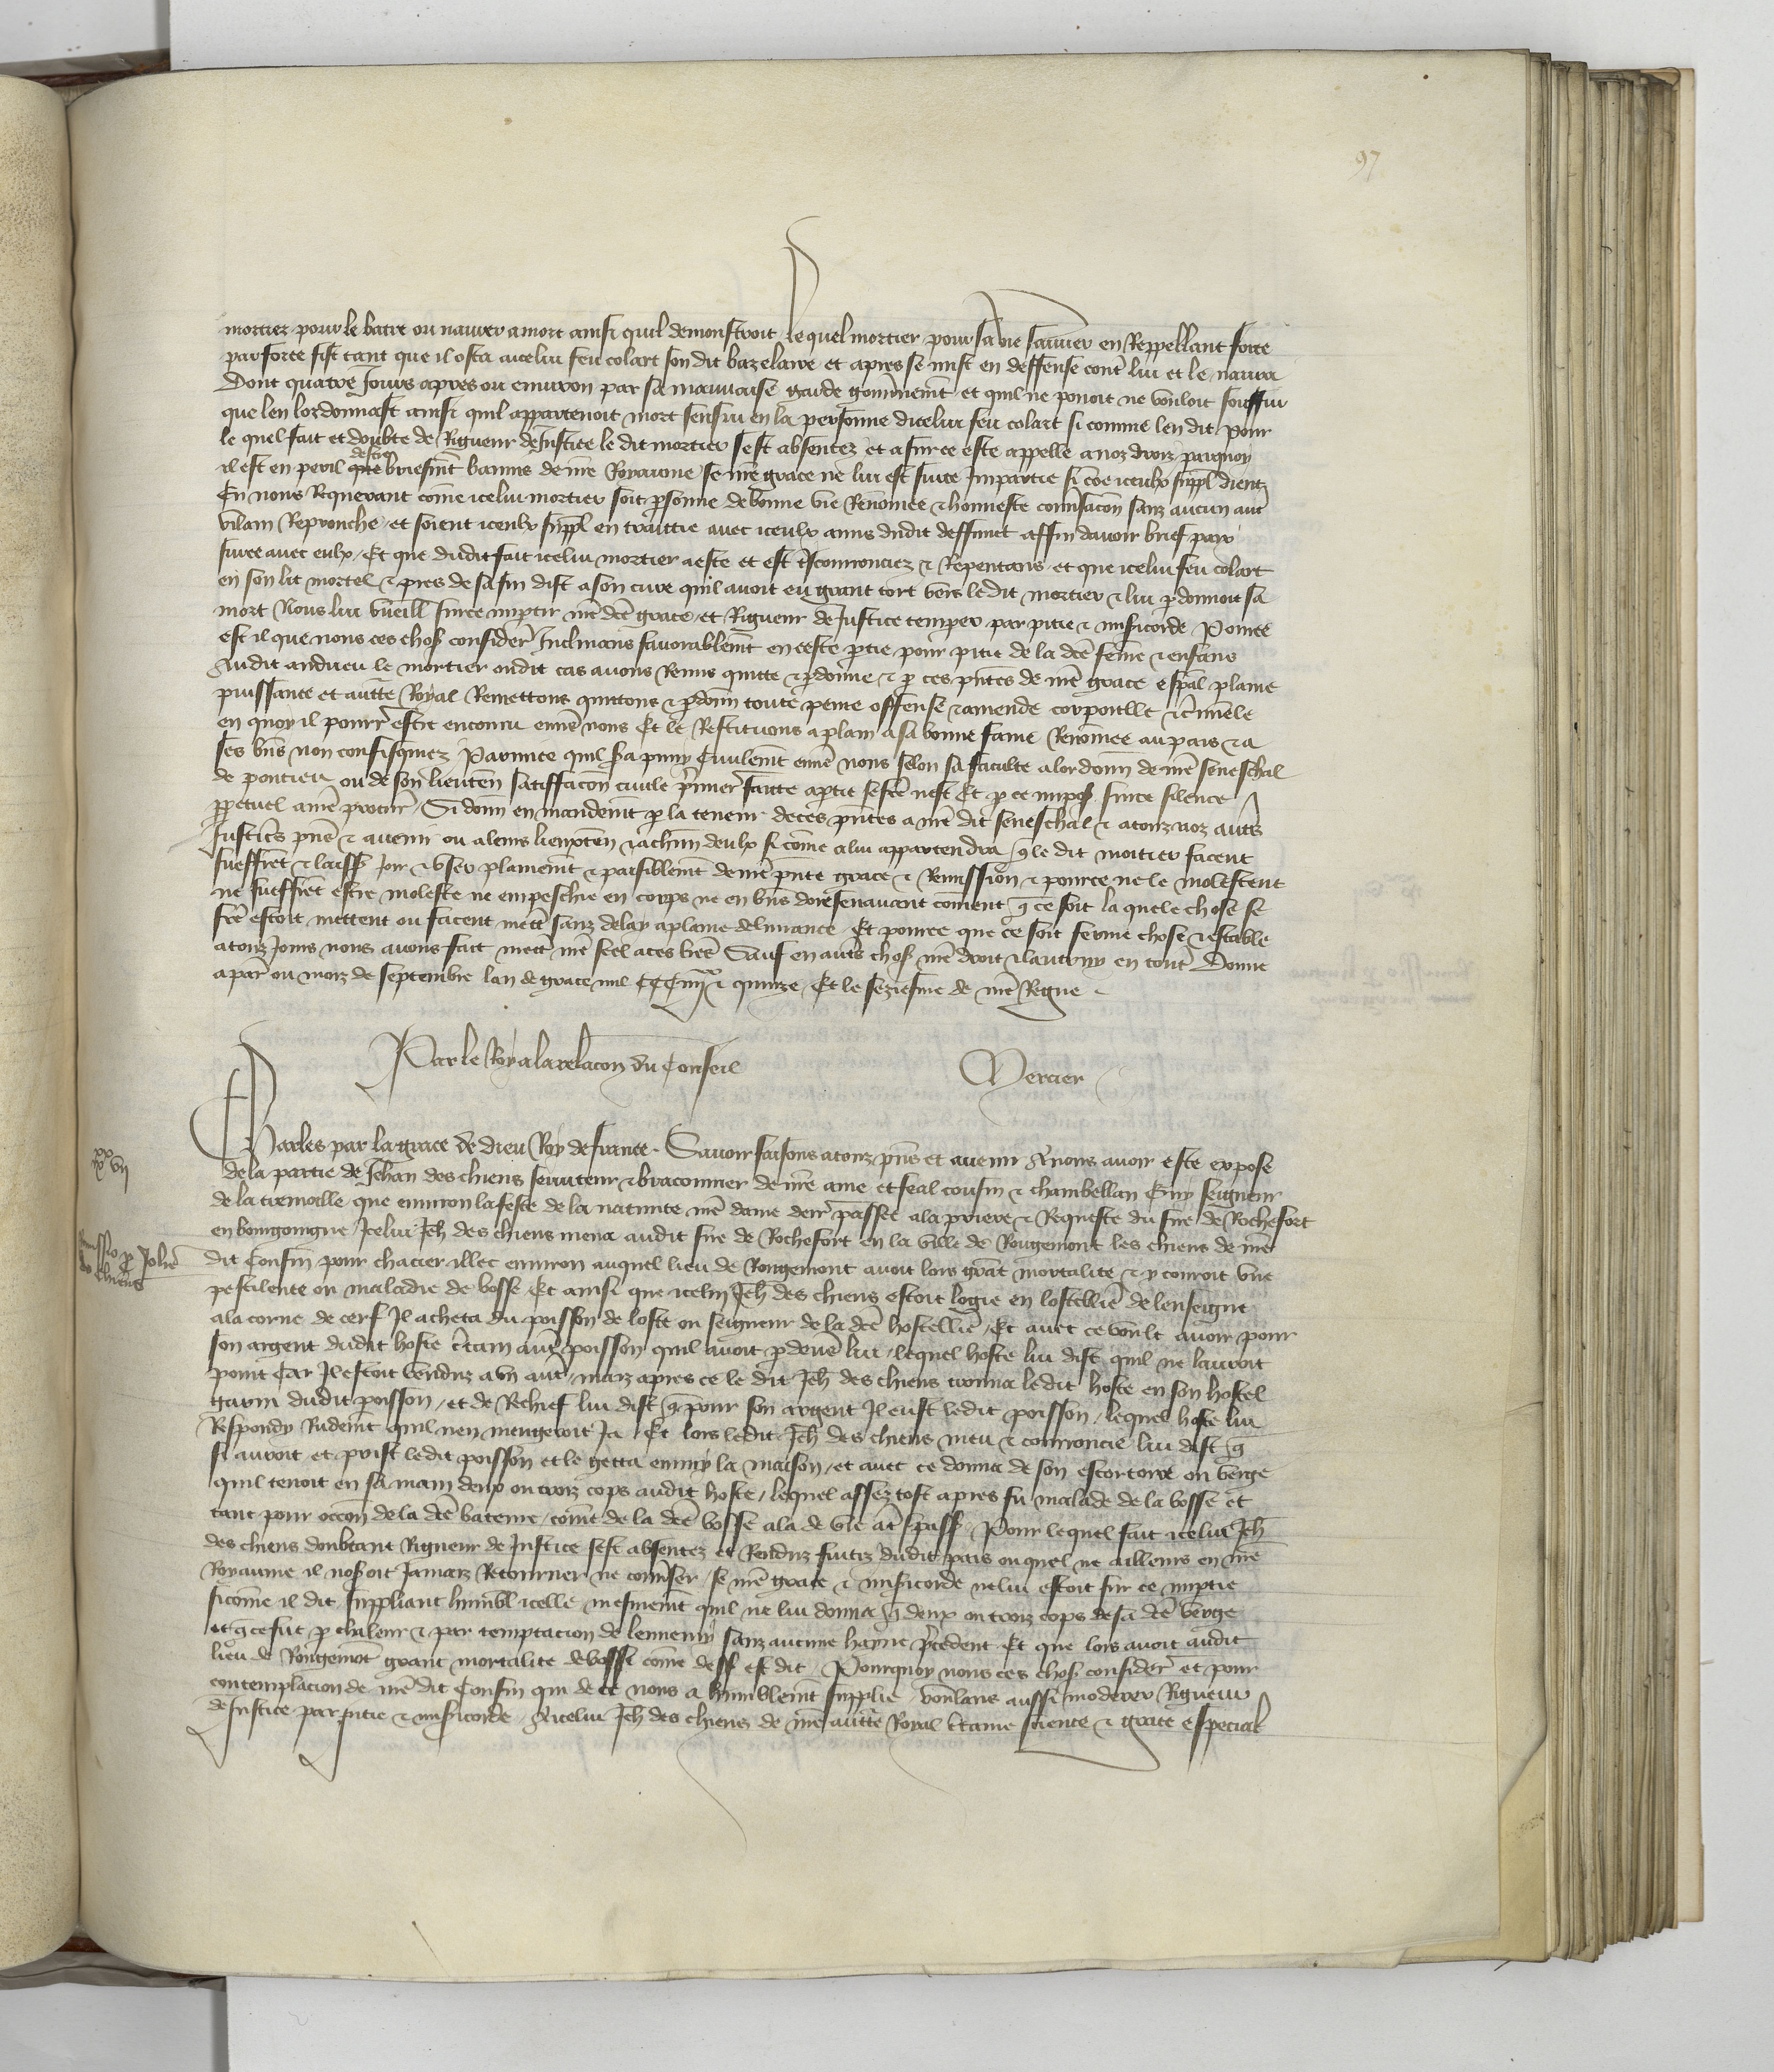 97
mortier pour le batre ou navrer a mort ainsi quil demonstroit le quel mortier pour sa vie sauver en Reppellant force
par force fist tant que il osta a icelui feu colart son dit bazelaire et apres se mist en deffense cont̃ lui et le navra
Dont quatre Jours apres ou environ par sa mauvaise garde gouv̄nemt̄ et quil ne povoit ne vouloit souffrir
que len lordonnast ainsi quil appartenoit mort sensui en la personne dicelui feu colart si comme len dit Pour
le quel fait et doubte de Rigueur de Justice le dit mortier sest absentez et a sur ce este appelle a noz droiz parquoy
il est en peril destre briefmt̄ banniz de nrē Royaume se nrē grace ne lui est sur ce Impartie si cōe iceulx suppl̄ dient
En nous Requerant cōme icelui mortier soit ꝑsonne de bonne vie Renōmee ⁊ honneste conv̄sacōn sanz aucun aut̃
vilain Reprouche et soient iceulx suppl̄ en traittie avec iceulx amis dudit deffunct affin davoir brief paix
sur ce avec eulx Et que dudit fait icelui mortier a este et est t̃scourouciez ⁊ Repentans et que icelui feu colart
en son lit mortel ⁊ pres de sa fin dist a son cure quil avoit eu grant tort vers le dit mortier ⁊ lui ꝑdonnoit sa
mort Nous lui vueill̄ sur ce imꝑtir nrē dcē grace et Rigueur de Justice temper par pitie ⁊ misericorde Pource
est il que nous ces chos̄ consider̄ Inclinans favorablemt̄ en ceste ꝑtie pour pitie de la dcē femē ⁊ enfans
Audit andrieu le mortier ou dit cas avons Remis quitte ⁊ ꝑdonne ⁊ ꝑ ces pn̄tes de nrē grace esp̄al plaine
puissance et auct̄te Royal Remettons quittons ⁊ ꝑdonn̄ toute peine offense ⁊ amende corporelle ⁊ c̃minele
en quoy il pourr̄ estre encouru env̄s nous Et le Restituons a plain a sa bonne fame Renōmee au pais ⁊ a
ses bn̄s non confisquiez Parmi ce quil s̄a puny Civilemt̄ env̄s nous selon sa faculte a lordonn̄ de nrē seneschal
de pontieu ou de son lieuten̄ satiffacōn civile p̃mier faitte a ꝑtie se fcē nest Et ꝑ ce impos̄ sur ce silence
ꝑpetuel a nrē procur̄ Si donn̄ en mandemt̄ ꝑ la teneur de ces pn̄tes a nrē dit seneschal ⁊ a touz noz autr̄s
Justiciers pn̄s ⁊ avenir ou a leurs lieuxten̄ ⁊ a ch̄un deulx si cōme a lui appartendra q̄ le dit mortier facent
sueffrent ⁊ laiss̄ Joir ⁊ user plainemt̄ ⁊ paisiblemt̄ de nrē pn̄te grace ⁊ Remission ⁊ pource ne le molestent
ne sueffrent estre moleste ne empeschie en corps ne en bn̄s dores en avant coment q̄ ce soit la quele chose se
fcē estoit mettent ou facent mett̄ sanz delay a plaine delivrance Et pource que ce soit ferme chose ⁊ estable
a touz Jours nous avons fait mett̄ nrē seel a ces lrēs Sauf en autr̄s chos̄ nrē droit ⁊ lautruy en tout̄ Donne
a par̄ ou mois de septembre lan de grace mil CCC iiij^xx ⁊ quinze Et le seziesme de nrē Regne
Par le Roy a la relacōn du Conseil Mercier
xx vij
Charles par la grace de dieu Roy de france Savoir faisons a touz pn̄s et avenir A nous avoir este expose
de la partie de Jehan des chiens serviteur ⁊ braconnier de nrē ame et feal cousin ⁊ chambellan Guy seigneur
de la tremoille que environ la feste de la nativite nrē dame derr̄ passee a la priere ⁊ Requeste du sire de Rochefort
en bourgoingne Icelui Jeh̄ des chiens mena audit sire de Rochefort en la ville de Rougemont les chiens de nrē
Remissio ꝑ Johē
des chiens
dit Cousin pour chacier illec environ auquel lieu de Rougemont avoit lors grant mortalite ⁊ y couroit une
pestilence ou maladie de bosse Et ainsi que icelui Jeh̄ des chiens estoit logie en lostelliē de lenseigne
a la corne de cerf Il acheta du poisson de loste ou seigneur de la dcē hostelliē Et avec ce voult avoir pour
son argent dudit hoste c̄tain aut̃ poisson quil avoit ꝑ devers lui lequel hoste lui dist quil ne lauroit
point Car Il estoit venduz a un aut̃ maiz apres ce le dit Jeh̄ des chiens trouva ledit hoste en son hostel
garni dudit poisson et de Rechief lui dist q̄ pour son argent Il eust ledit poisson lequel hoste lui
Respondy Rudemt̄ quil nen mengeroit Ja Et lors ledit Jeh̄ des chiens meu ⁊ courroucie lui dist q̄
si auroit et prist ledit poisson et le getta enmy la maison et avec ce donna de son escorcoire ou verge
quil tenoit en sa main deux ou troiz cops audit hoste lequel assez tost apres fu malade de la bosse et
tant pour occōn de la dcē bateure cōme de la dcē bosse ala de vie a t̃spass̄ Pour lequel fait icelui Jeh̄
des chiens doubtant Rigueur de Justice sest absentez et Renduz fuitiz dudit pais ou quel ne ailleurs en nrē
Royaume il nos̄oit Jamaiz Retourner ne conv̄ser se nrē grace ⁊ misericorde ne lui estoit sur ce imꝑtie
sicōme il dit suppliant humbl̄ icelle mesmemt̄ quil ne lui donna q̄ deux ou troiz cops de sa dcē verge
et q̄ ce fut ꝑ chaleur ⁊ par temptacion de lennemy sanz aucune hayne p̃cedent Et que lors avoit audit
lieu de Rougemōt grant mortalite de bosse cōme dess̄ est dit Pourquoy nous ces chos̄ consider̄ et pour
contemplacion de nrē dit Cousin qui de ce nous a humblemt̄ supplie voulans aussi moderer Rigueur
de Justice par pitie ⁊ misericorde A icelui Jeh̄ des chiens de nrē auct̄te Royal c̄taine science ⁊ grace especial